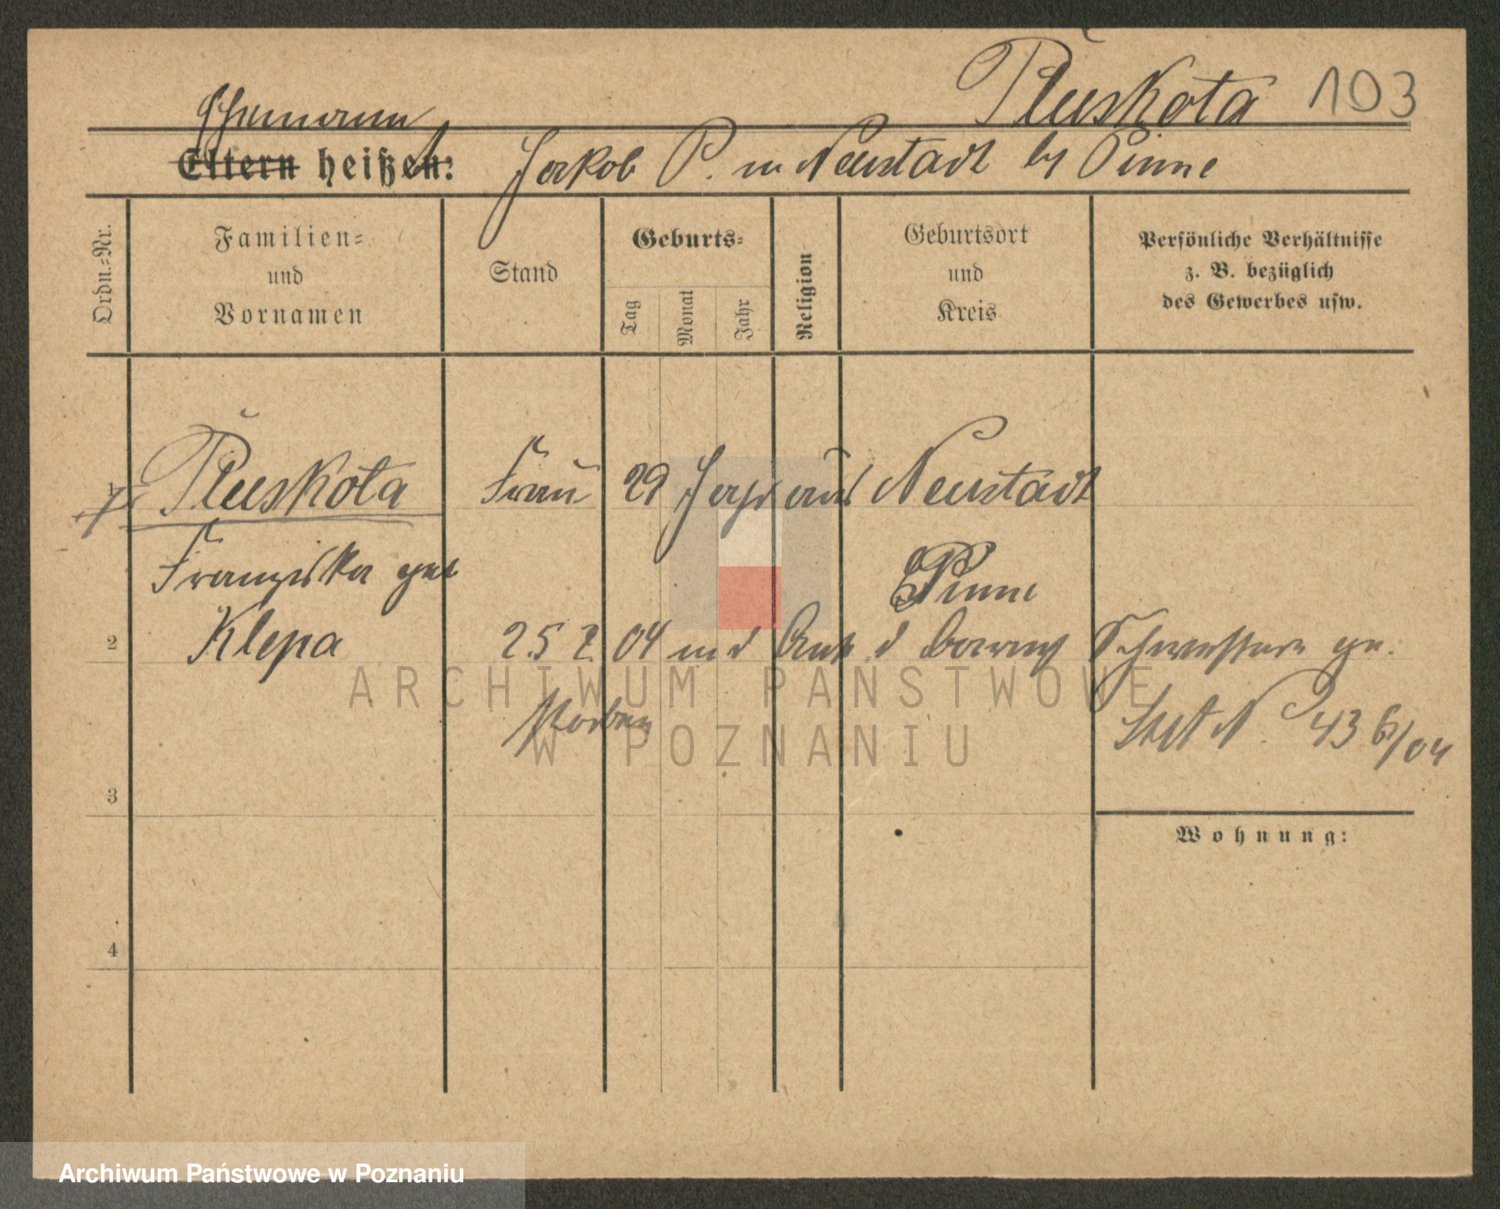 Pluskota 103
Ehemann
Eltern heißen: Jakob P. in Neustadt by Pinne
Ordn.-Nr.
Familien-
und
Vornamen
Stand
Geburts-
Tag
Monat
Jahr
Religion
Geburtsort
und
Kreis
Persönliche Verhältnisse
z. B. bezüglich
des Gewerbes usw.
1 Pluskota Frau 29 Jahr aus Neustadt
Franziska geb Pinne
2 Klepa 25 2 04 in d Anst d barmh Schwestern ge-
storben Stdt N. 436/04
3
Wohnung:
4
ARCHIWUM PAŃSTWOWE
W POZNANIU
Archiwum Państwowe w Poznaniu